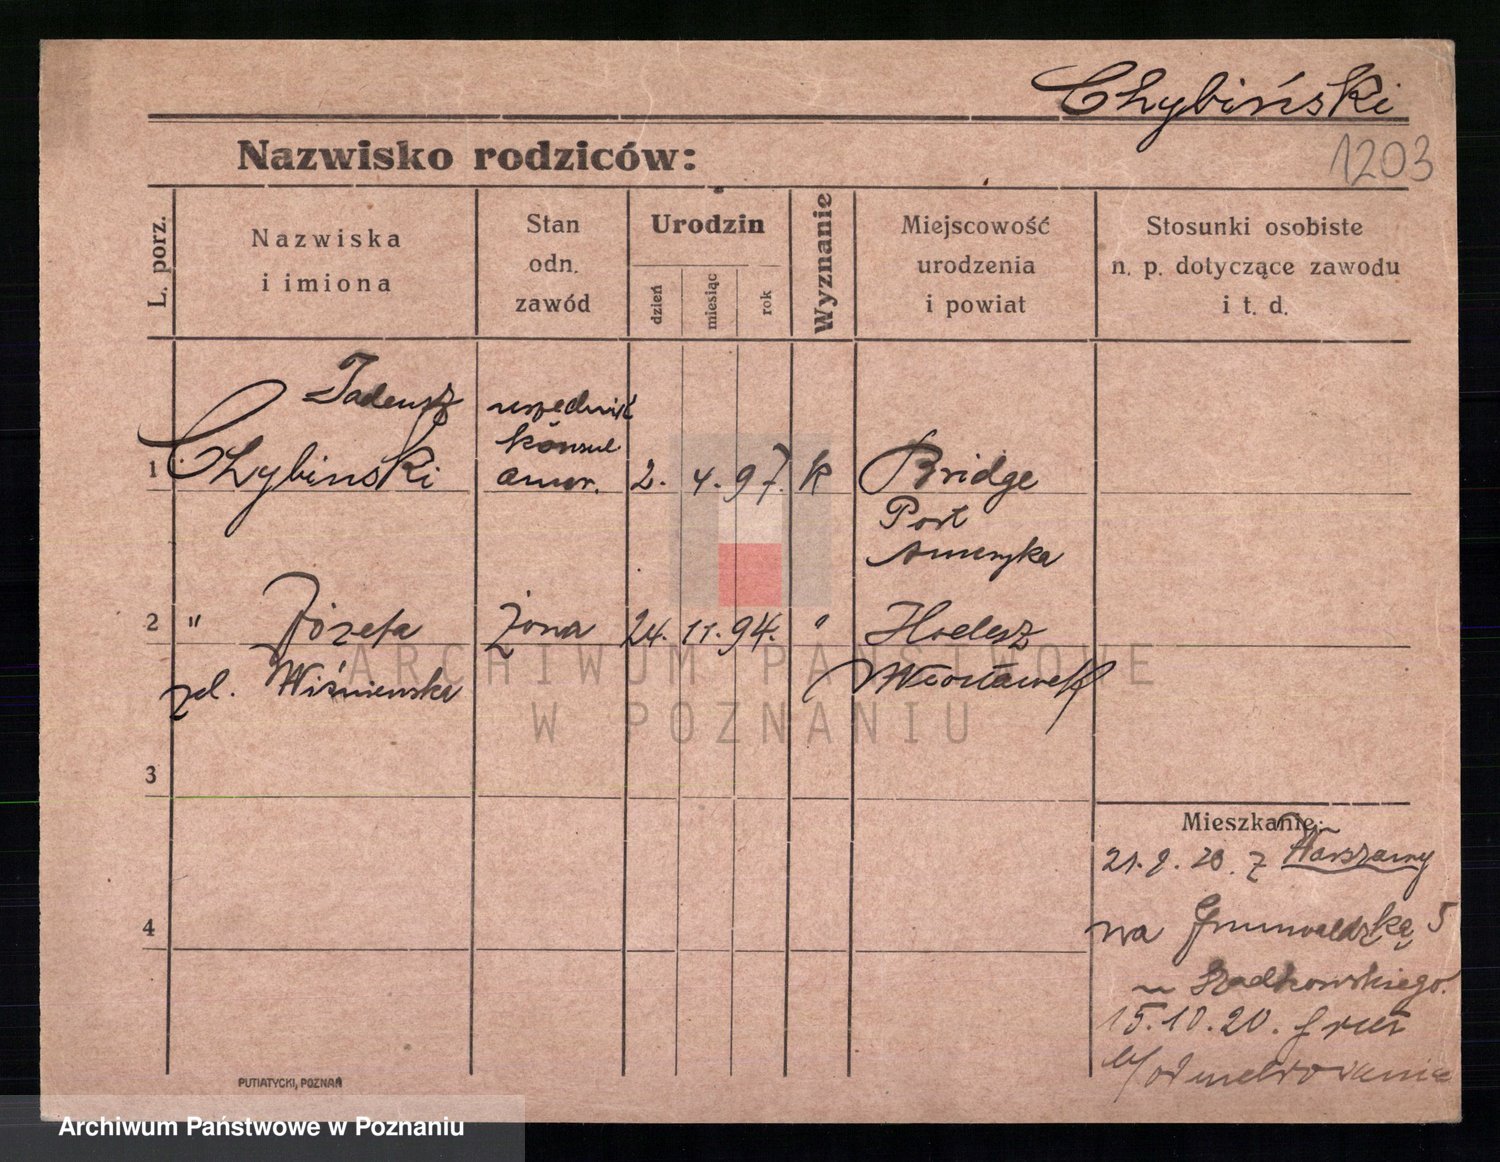 Chybiński
1203
Nazwisko rodziców:
L. porz.
Nazwiska
i imiona
Stan
odn.
zawód
Urodzin
dzień
miesiąc
rok
Wyznanie
Miejscowość
urodzenia
i powiat
Stosunki osobiste
n. p. dotyczące zawodu
i t. d.
Tadeusz
1 Chybinski
konsul
amer. 2. 4. 97. k Bridge
Port
Ameryka
2 " Józefa Żona 24. 11. 94. "
zd. Wiśniewska
3
4
Mieszkanie:
z Warszawy
na Grunwaldzką 5
15.10.20.
PUTIATYCKI, POZNAŃ
ARCHIWUM PAŃSTWOWE
W POZNANIU
Archiwum Państwowe w Poznaniu